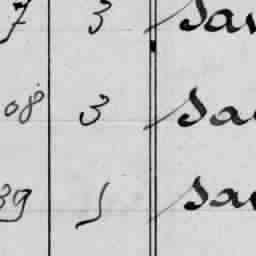 7 3 sa
08 3 sa
39 1 sa